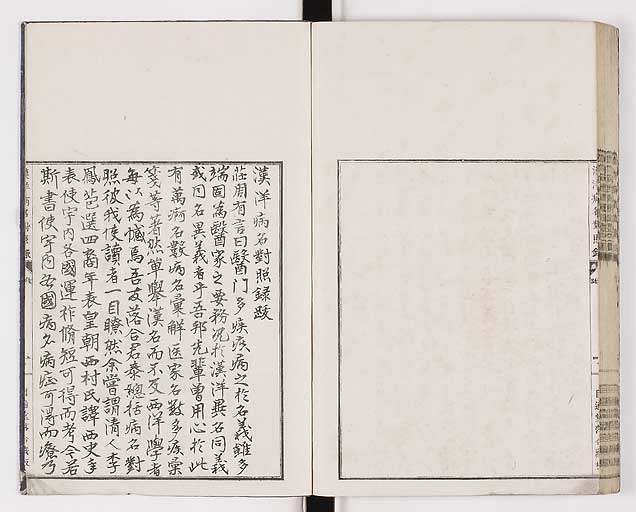 漢洋病名對照録跋
莊周有言曰醫門多疾疾病之於名義雖多
端固爲醫家之要務况於漢洋異名同義
或同名異義者乎吾邦先輩曾用心於此
有萬病名數病名彙解醫家名數多疾彙
箋等著然單擧漢名而不及西洋學者
每以爲憾焉吾友落合君泰總括病名對
照彼我使讀者一目瞭然余嘗謂清人李
鳳苞選四裔年表皇朝西村氏譯西史年
表使宇内各國運祚脩短可得而考今若
斯書使宇内各國病名病症可得而療乃
漢洋病名對照録